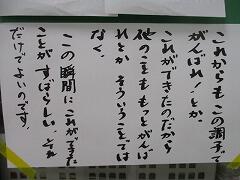 これからもこの調子で
がんばれ！とか、
これができたのだから
他のことももっとがんば
れとか そういうことでは
なく、
この瞬間にこれができた
ことがすばらしい、それ
だけでよいのです。